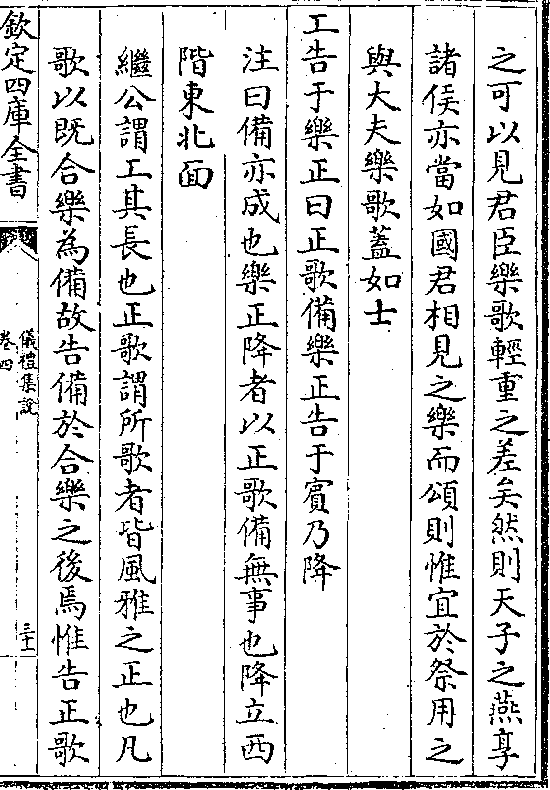 之可以見君臣樂歌輕重之差矣然則天子之燕享
諸侯亦當如國君相見之樂而頌則惟宜於祭用之
與大夫樂歌蓋如士
工告于樂正曰正歌備樂正告于賓乃降
注曰備亦成也樂正降者以正歌備無事也降立西
階東北面
繼公謂工其長也正歌謂所歌者皆風雅之正也凡
歌以既合樂為備故告備於合樂之後焉惟告正歌
欽定四庫全書
儀禮集說
卷四
三十一